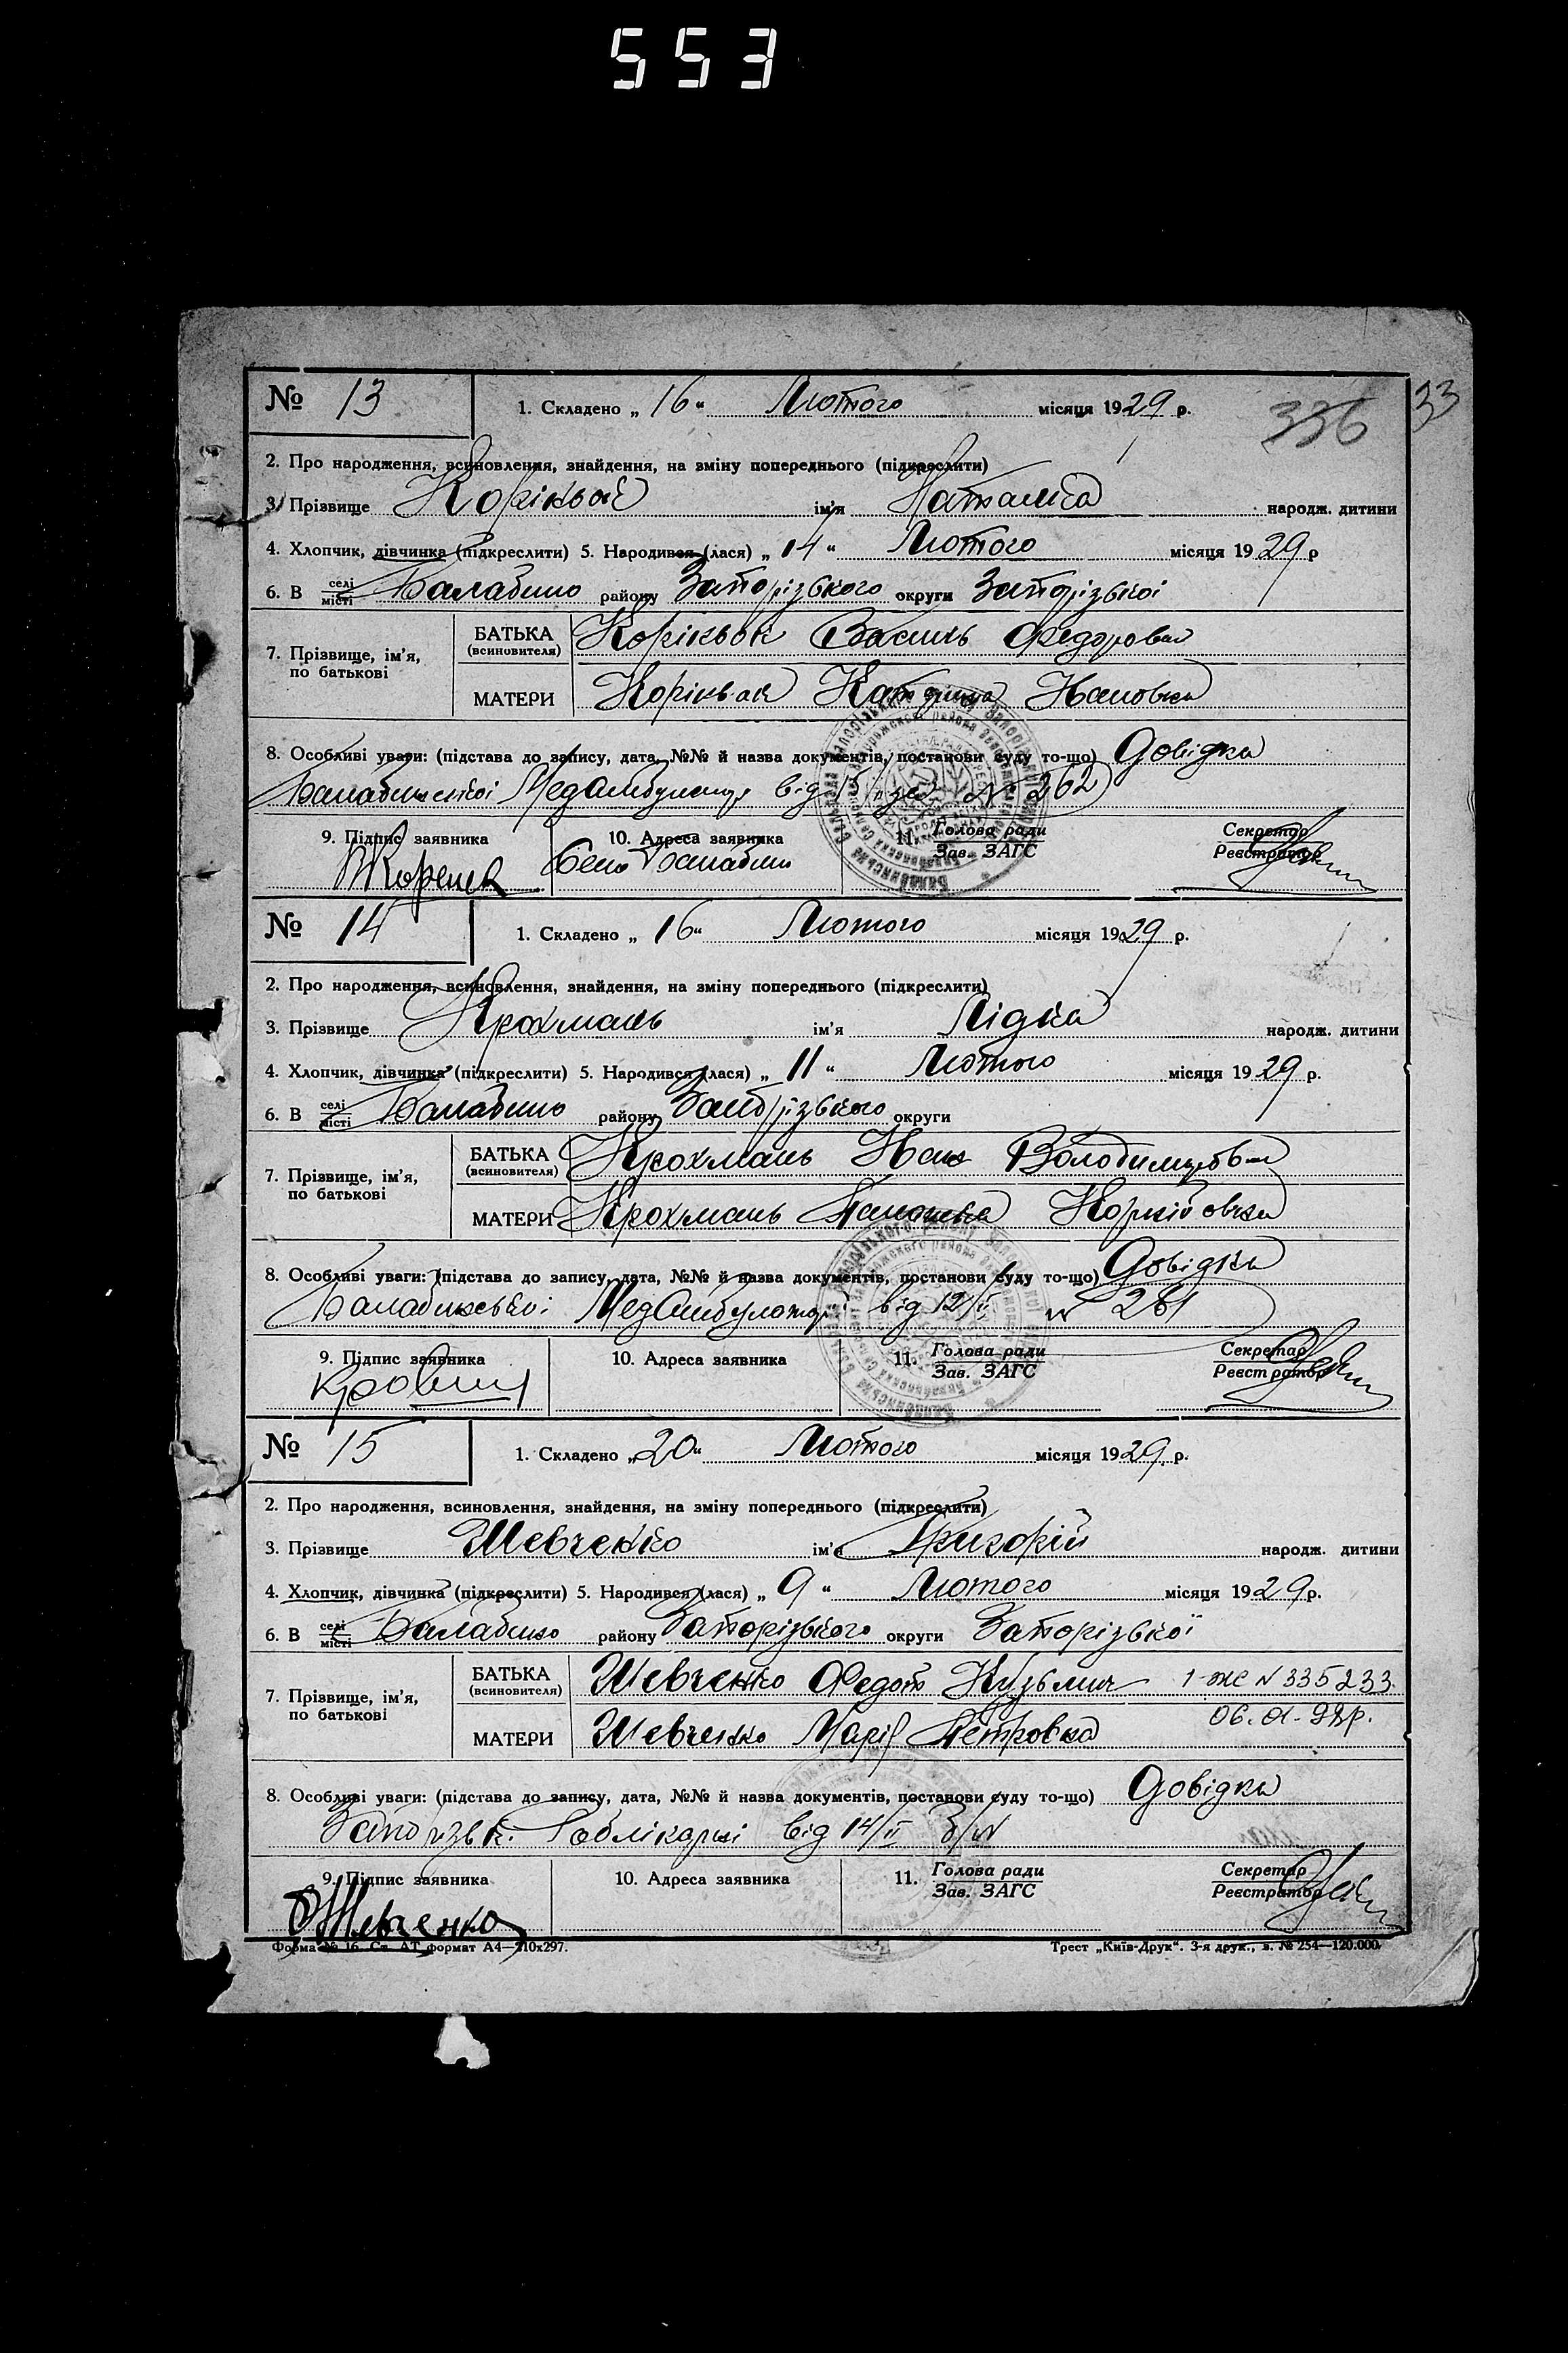 553
№ 13 1. Складено „ 16 “ Лютого місяця 1929 р. 336 33
2. Про народження, всиновлення, знайдення, на зміну попереднього (підкреслити)
3. Прізвище ім'я Наталка народж. дитини
4. Хлопчик, дівчинка (підкреслити) 5. Народився (лася) „ 14 “ Лютого місяця 1929 р
6. В селі місті Балабино району Запорізького округи Запорізької
7. Прізвище, ім'я, по батькові БАТЬКА (всиновителя) Василь Федорович
МАТЕРИ Катерина
8. Особливі уваги: (підстава до запису, дата, №№ й назва документів, постанови суду то-що) Довідка
Балабинської МедАмбулатор від № 262
9. Підпис заявника 10. Адреса заявника 11. Голова ради Зав. ЗАГС Секретар Реєстратор
Село Балабино
№ 14 1. Складено „ 16 “ Лютого місяця 1929 р.
2. Про народження, всиновлення, знайдення, на зміну попереднього (підкреслити)
3. Прізвище Крохмаль ім'я Лідка народж. дитини
4. Хлопчик, дівчинка (підкреслити) 5. Народився (лася) „ 11 “ Лютого місяця 1929 р.
6. В селі місті Балабино району Запорізького округи
7. Прізвище, ім'я, по батькові БАТЬКА (всиновителя) Крохмаль Іван Володимирович
МАТЕРИ Крохмаль
8. Особливі уваги: (підстава до запису, дата, №№ й назва документів, постанови суду то-що) Довідка
Балабинської МедАмбулатор від 12/II № 261
9. Підпис заявника 10. Адреса заявника 11. Голова ради Зав. ЗАГС Секретар Реєстратор
№ 15 1. Складено „ 20 “ Лютого місяця 1929 р.
2. Про народження, всиновлення, знайдення, на зміну попереднього (підкреслити)
3. Прізвище Шевченко ім'я Григорій народж. дитини
4. Хлопчик, дівчинка (підкреслити) 5. Народився (лася) „ 9 “ Лютого місяця 1929 р.
6. В селі місті Балабино району Запорізького округи Запорізької
7. Прізвище, ім'я, по батькові БАТЬКА (всиновителя) Шевченко Федот Кузьмич 1-ЖС N 335233
МАТЕРИ Шевченко Марія Петровна
8. Особливі уваги: (підстава до запису, дата, №№ й назва документів, постанови суду то-що) Довідка
Запорізьк. від 14/II б/N
9. Підпис заявника 10. Адреса заявника 11. Голова ради Зав. ЗАГС Секретар Реєстратор
Шевченко
Форма № 16. Ст. АТ формат А4—210х297. Трест „Київ-Друк“. 3-я друк., з. № 254—120.000.